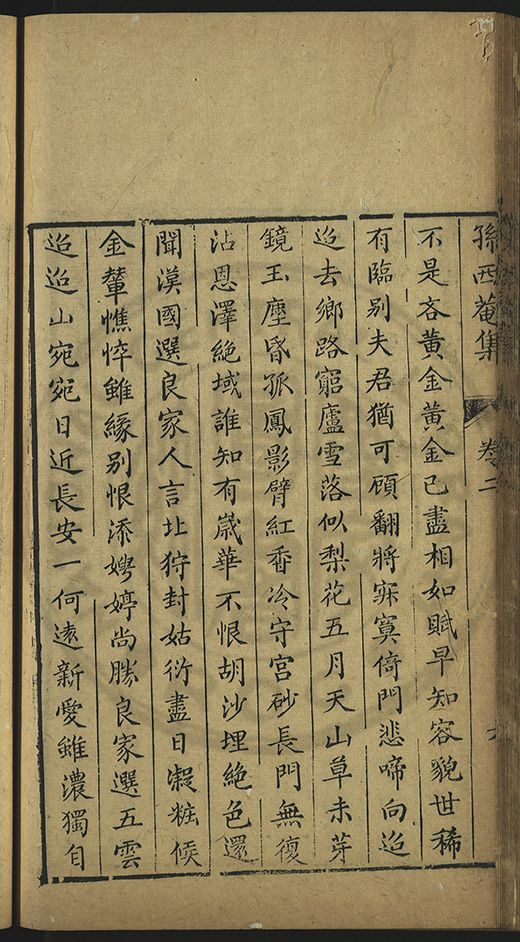 孫西菴集 卷二
不是吝黃金黃金已盡相如賦早知容貌世稀
有臨別夫君猶可頋翻將寂寞倚門悲啼向迢
迢去鄉路窮廬雪落似梨花五月天山草未芽
鏡玉塵昏孤鳳影臂紅香冷守宮砂長門無復
沾恩澤絕域誰知有歲華不恨胡沙埋絕色還
聞漢國選良家人言北狩封姑衍盡日凝粧候
金輦憔悴雖緣别恨添娉婷尚勝良家選五雲
迢迢山宛宛日近長安一何遠新愛雖濃獨自